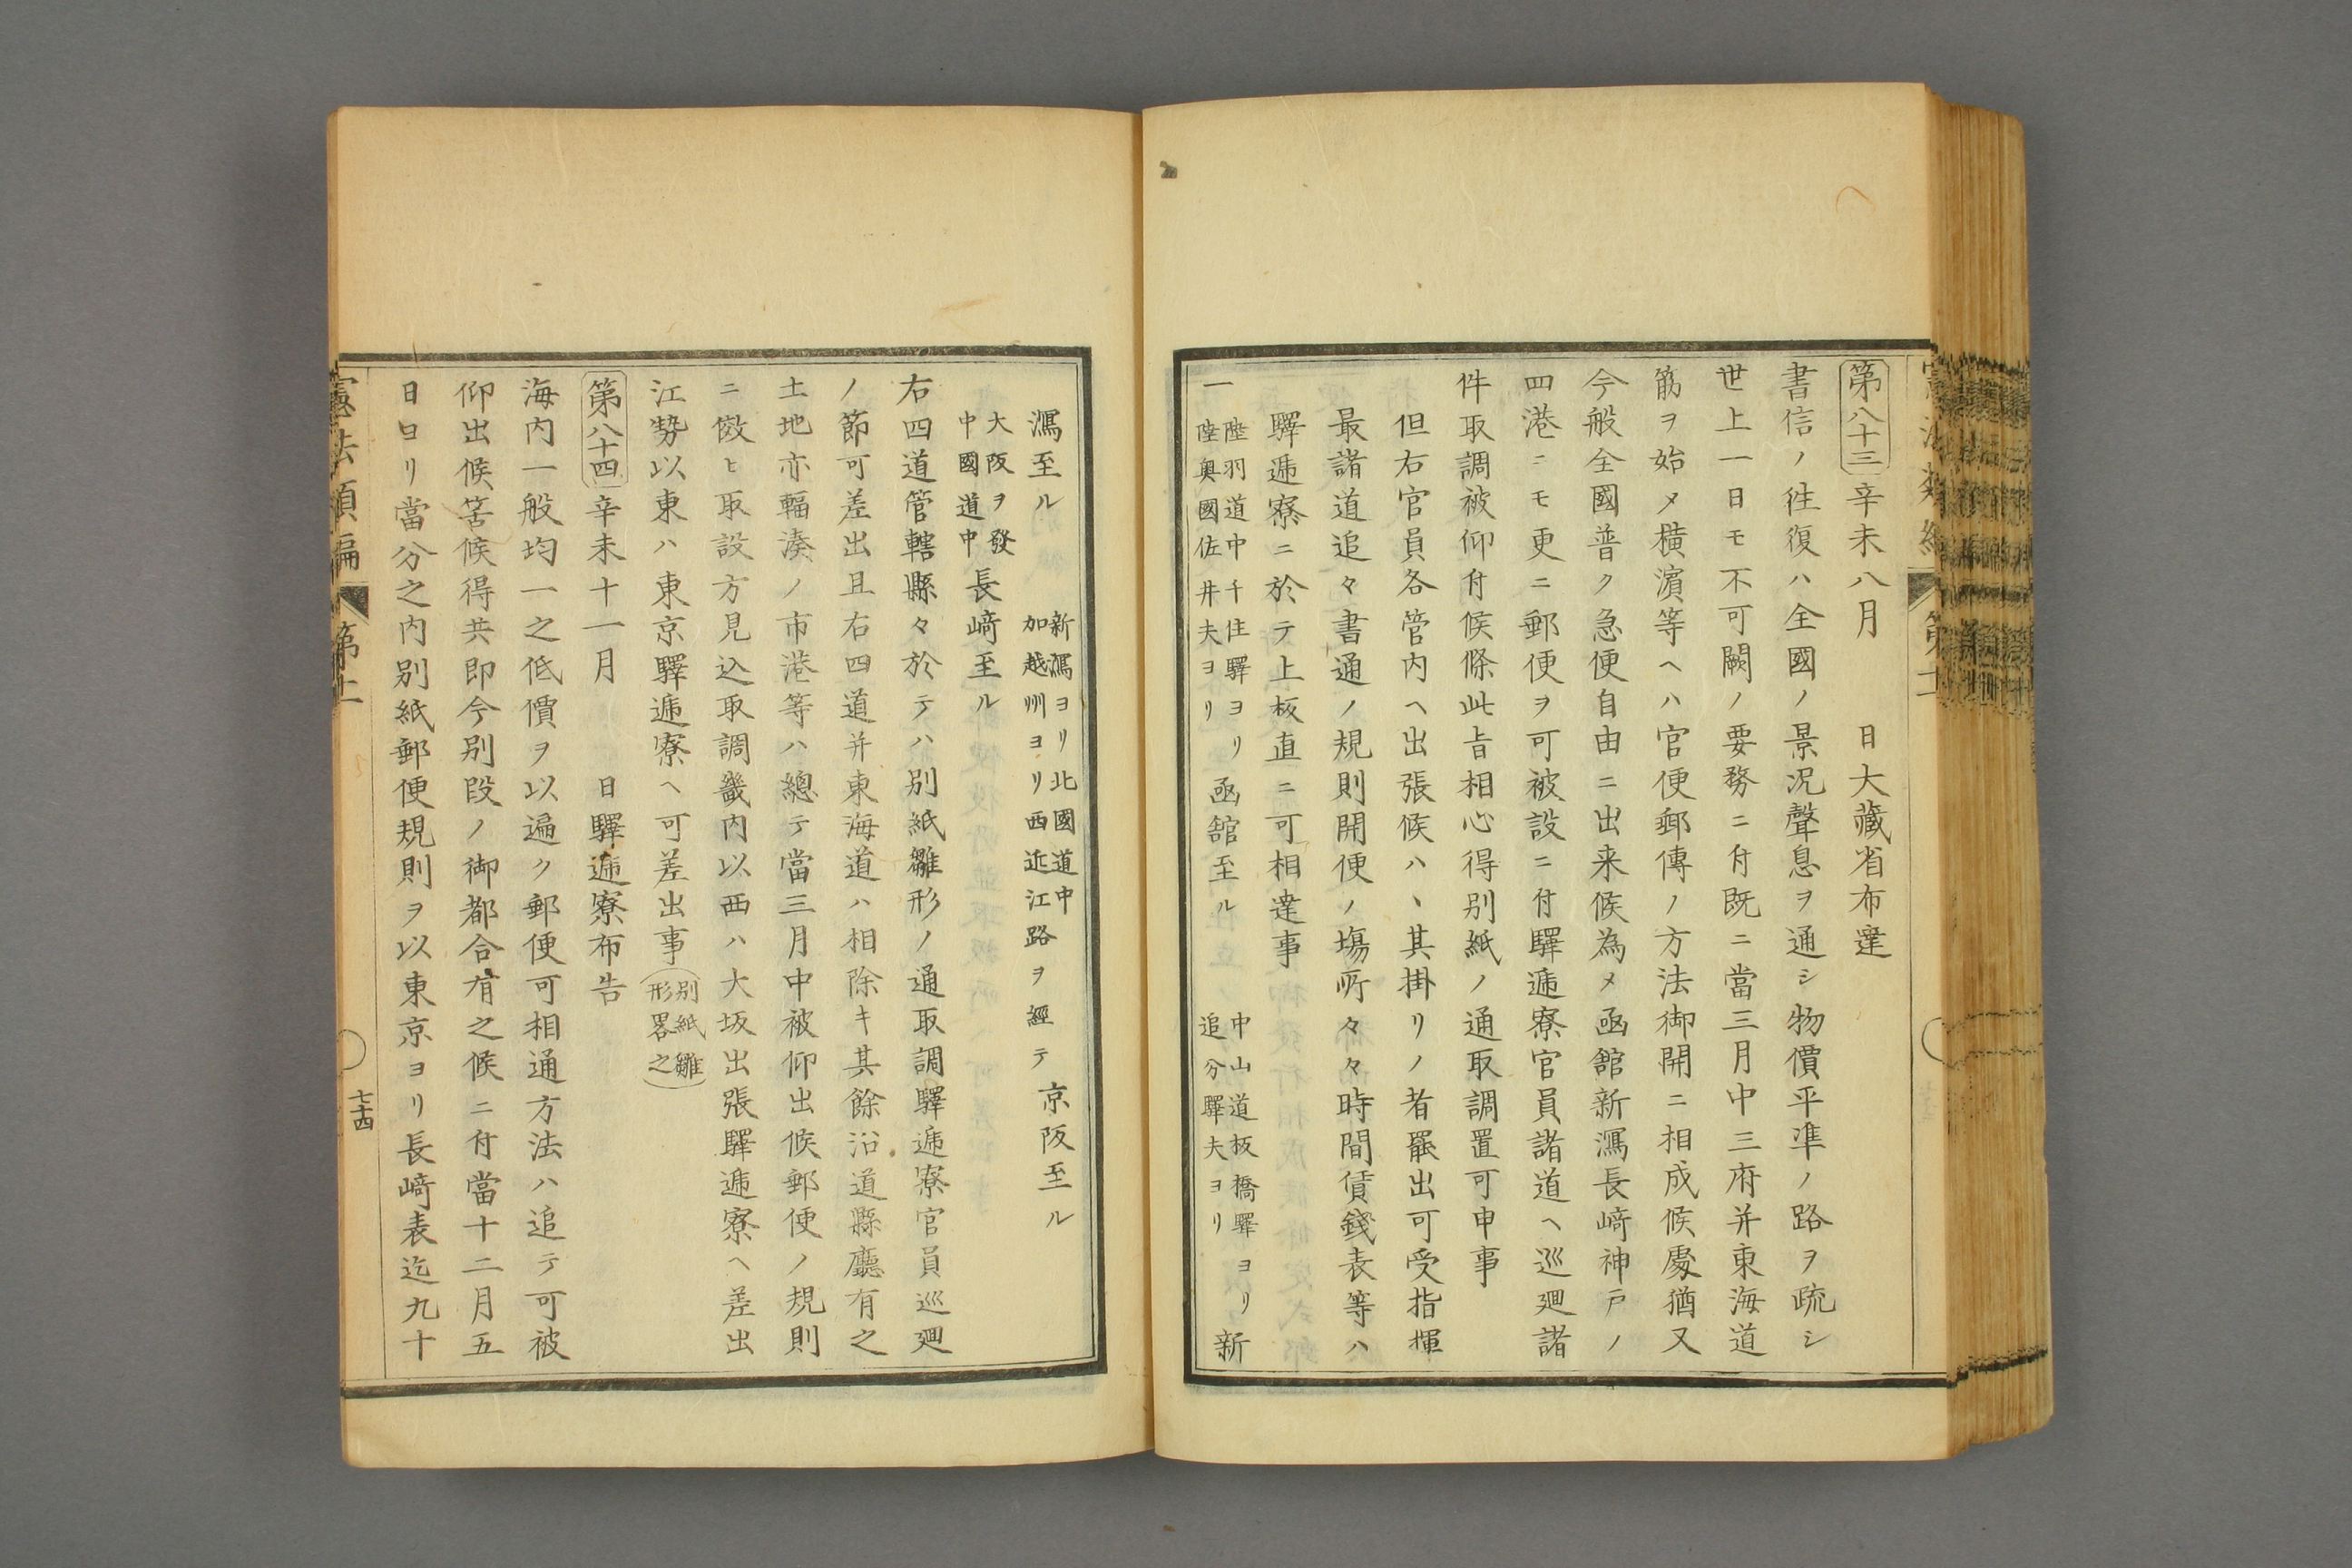 第八十三 辛未八月 日大藏省布達
書信ノ徃復ハ全國ノ景况聲息ヲ通シ物價平準ノ路ヲ疏シ
世上一日モ不可闕ノ要務ニ付既ニ當三月中三府并東海道
筋ヲ始メ横濵等ヘハ官便郵傳ノ方法御開ニ相成候處猶又
今般全國普ク急便自由ニ出来候為メ函舘新潟長﨑神戸ノ
四港ニモ更ニ郵便ヲ可被設ニ付驛遞寮官員諸道ヘ巡廻諸
件取調被仰付候條此旨相心得別紙ノ通取調置可申事
但右官員各管内ヘ出張候ハヽ其掛リノ者罷出可受指揮
最諸道追々書通ノ規則開便ノ塲所々々時間賃錢表等ハ
驛遞寮ニ於テ上板直ニ可相達事
一 陸羽道中千住驛ヨリ 函舘至ル 中山道板橋驛ヨリ 新
陸奥國佐井夫ヨリ 追分驛夫ヨリ
潟至ル 新潟ヨリ北國道中 京阪至ル
加越州ヨリ西近江路ヲ經テ
大阪ヲ發 長﨑至ル
中國道中
右四道管轄縣々於テハ別紙雛形ノ通取調驛遞寮官員巡廻
ノ節可差出且右四道并東海道ハ相除キ其餘沿道縣廳有之
土地亦輻湊ノ市港等ハ總テ當三月中被仰出候郵便ノ規則
ニ傚ヒ取設方見込取調畿内以西ハ大坂出張驛遞寮ヘ差出
江勢以東ハ東京驛遞寮ヘ可差出事(別紙雛形畧之)
第八十四 辛未十一月 日驛遞寮布告
海内一般均一之低價ヲ以遍ク郵便可相通方法ハ追テ可被
仰出候筈候得共即今別段ノ御都合有之候ニ付當十二月五
日ヨリ當分之内別紙郵便規則ヲ以東京ヨリ長﨑表迄九十
憲法類編 第十
七十四